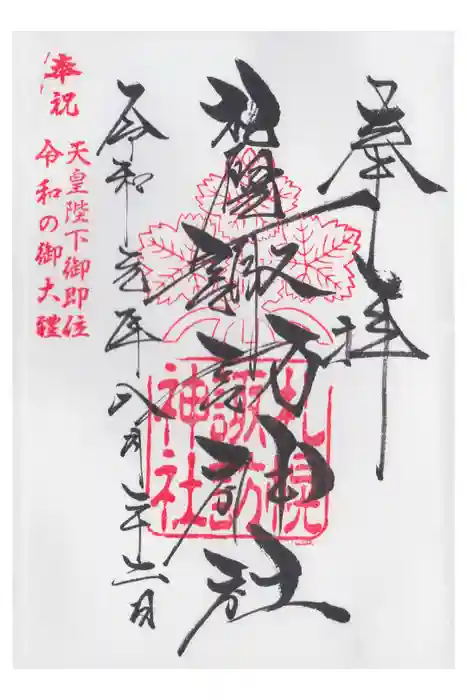 奉拝
札幌諏訪神社
札幌
諏訪
神社
令和元年八月二十六日
奉祝
天皇陛下御即位
令和の御大禮